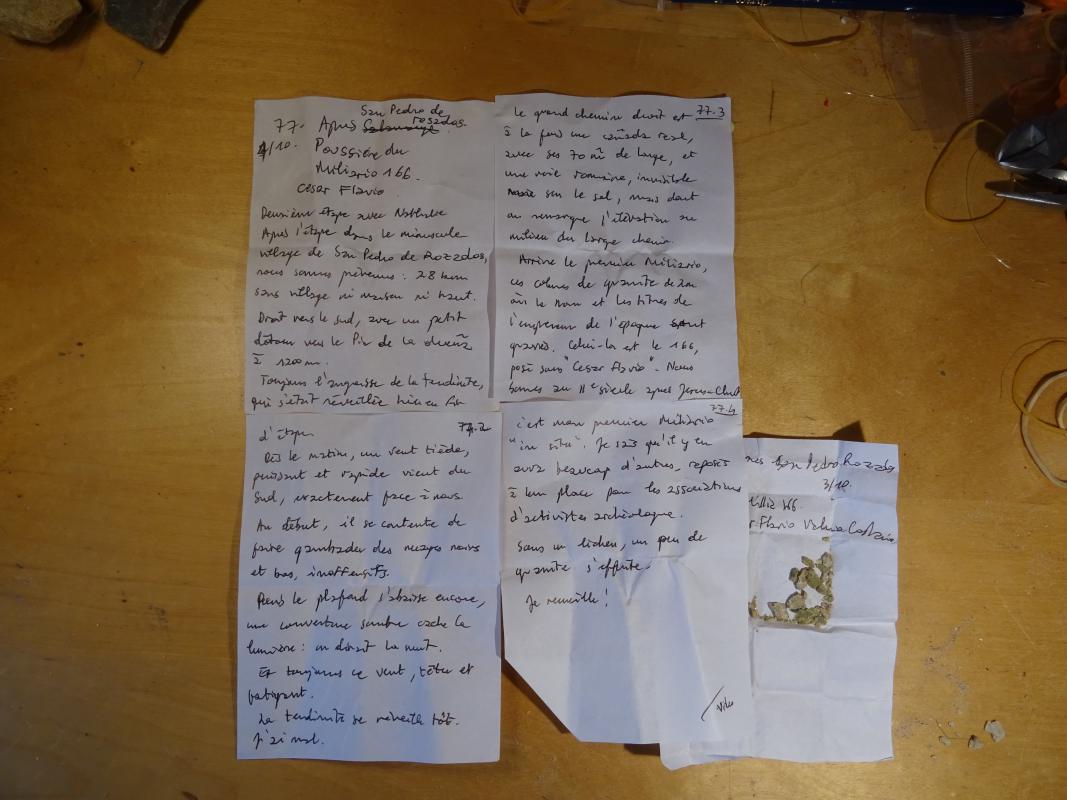 San Pedro de
77. Après Salamanque rosados.
4/10. Poussière du
Miliario 166.
Cesar Flavio
Deuxième étape avec Nathalie
Après l'étape dans le minuscule
village de San Pedro de Rozados,
nous sommes prévenus : 28 km
sans village ni maison ni haut.
Droit vers le sud, avec un petit
détour vers le Pic de la
à 1200 m.
Toujours l'angoisse de la tendinite,
qui s'était réveillée hier en fin
77.2
d'étape.
Dès le matin, un vent tiède,
puissant et rapide vient du
Sud, exactement face à nous.
Au début, il se contente de
faire gambader des nuages noirs
et bas, inoffensifs.
Puis le plafond s'abaisse encore,
une couverture sombre cache la
lumière : on dirait la nuit.
Et toujours ce vent, têtu et
fatigant.
La tendinite se réveille tôt.
J'ai mal.
77.3
Le grand chemin droit est
à la fois une cañada real,
avec ses 70 m de large, et
une voie romaine, invisible
sur le sol, mais dont
on remarque l'élévation au
milieu du large chemin.
Arrive le premier Miliario,
ces colonnes de granite de 2m
où le nom et les titres de
l'empereur de l'époque sont
gravés. Celui-là est le 166,
posé sous "Cesar Flavio". Nous
sommes au IIe siècle après Jérus-Christ
77.4
c'est mon premier Miliario
"in situ". Je sais qu'il y en
aura beaucoup d'autres, reposés
à leur place par les associations
d'activistes archéologue.
Sous un lichen, un peu de
granite s'effrite.
Je recueille !
San Pedro Rozados
3/10.
166.
Flavio